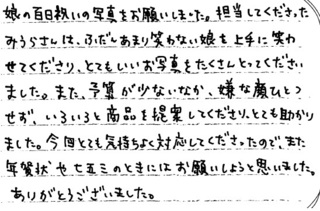 娘の百日祝いの写真をお願いしました。担当してくださった
みうらさんは、ふだんあまり笑わない娘も上手に笑わ
せてくださり、とてもいいお写真をたくさんとってください
ました。また、予算が少ないなか、嫌な顔ひとつ
せず、いろいろと商品を提案してくださり、とても助かり
ました。今回とても気持ちよく対応してくださったので、また
年賀状や七五三のときにはお願いしようと思いました。
ありがとうございました。